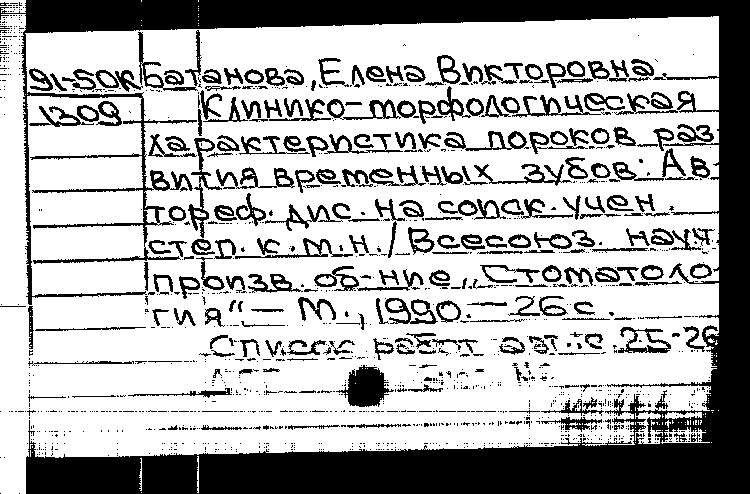 91-50К Батанова, Елена Викторовна.
1309 Клинико-морфологическая
характеристика пороков раз-
вития временных зубов: Ав-
тореф. дис. на соиск. учен.
степ. к.м.н./ Всесоюз. науч.
произв. об-ние „Стоматоло-
гия“ — М., 1990. — 26 с.
Список работ авт.: с. 25-26